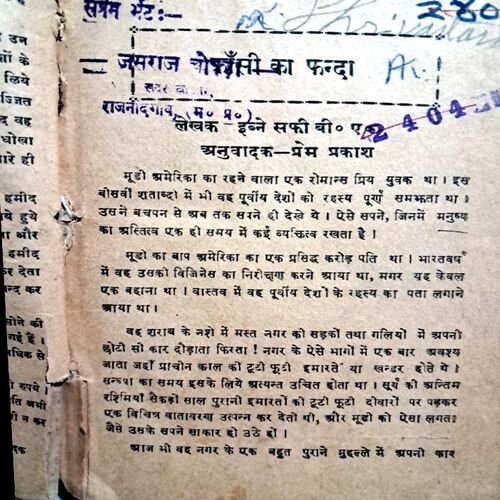 सप्रेम भेंट:-
280
जसराज चो
फाँसी का फन्दा
सदर बा
राजनांदगांव, (म॰ प्र॰)
लेखक—इब्ने सफी बी॰ ए॰
2404
अनुवादक—प्रेम प्रकाश
मूडी अमेरिका का रहने वाला एक रोमान्स प्रिय युवक था। इस
बीसवीं शताब्दी में भी वह पूर्वीय देशों को रहस्य पूर्ण समझता था।
उसने बचपन से अब तक सपने ही देखे थे। ऐसे सपने, जिनमें मनुष्य
का अस्तित्व एक ही समय में कई व्यक्तित्व रखता है।
मूडी का बाप अमेरिका का एक प्रसिद्ध करोड़ पति था। भारतवर्ष
में वह उसको बिजिनेस का निरीक्षण करने आया था, मगर यह केवल
एक बहाना था। वास्तव में वह पूर्वीय देशों के रहस्य का पता लगाने
आया था।
वह शराब के नशे में मस्त नगर की सड़कों तथा गलियों में अपनी
छोटी सी कार दौड़ाता फिरता! नगर के ऐसे भागों में एक बार अवश्य
जाता जहाँ प्राचीन काल की टूटी फूटी इमारतें या खन्डर होते थे।
सन्ध्या का समय इसके लिये अत्यन्त उचित होता था। सूर्य की अन्तिम
रश्मियाँ सैकड़ों साल पुरानी इमारतों की टूटी फूटी दीवारों पर पड़कर
एक विचित्र वातावरण उत्पन्न कर देती थीं, और मूडी को ऐसा लगता
जैसे उसके सपने साकार हो उठे हों।
आज भी वह नगर के एक बहुत पुराने मुहल्ले में अपनी कार